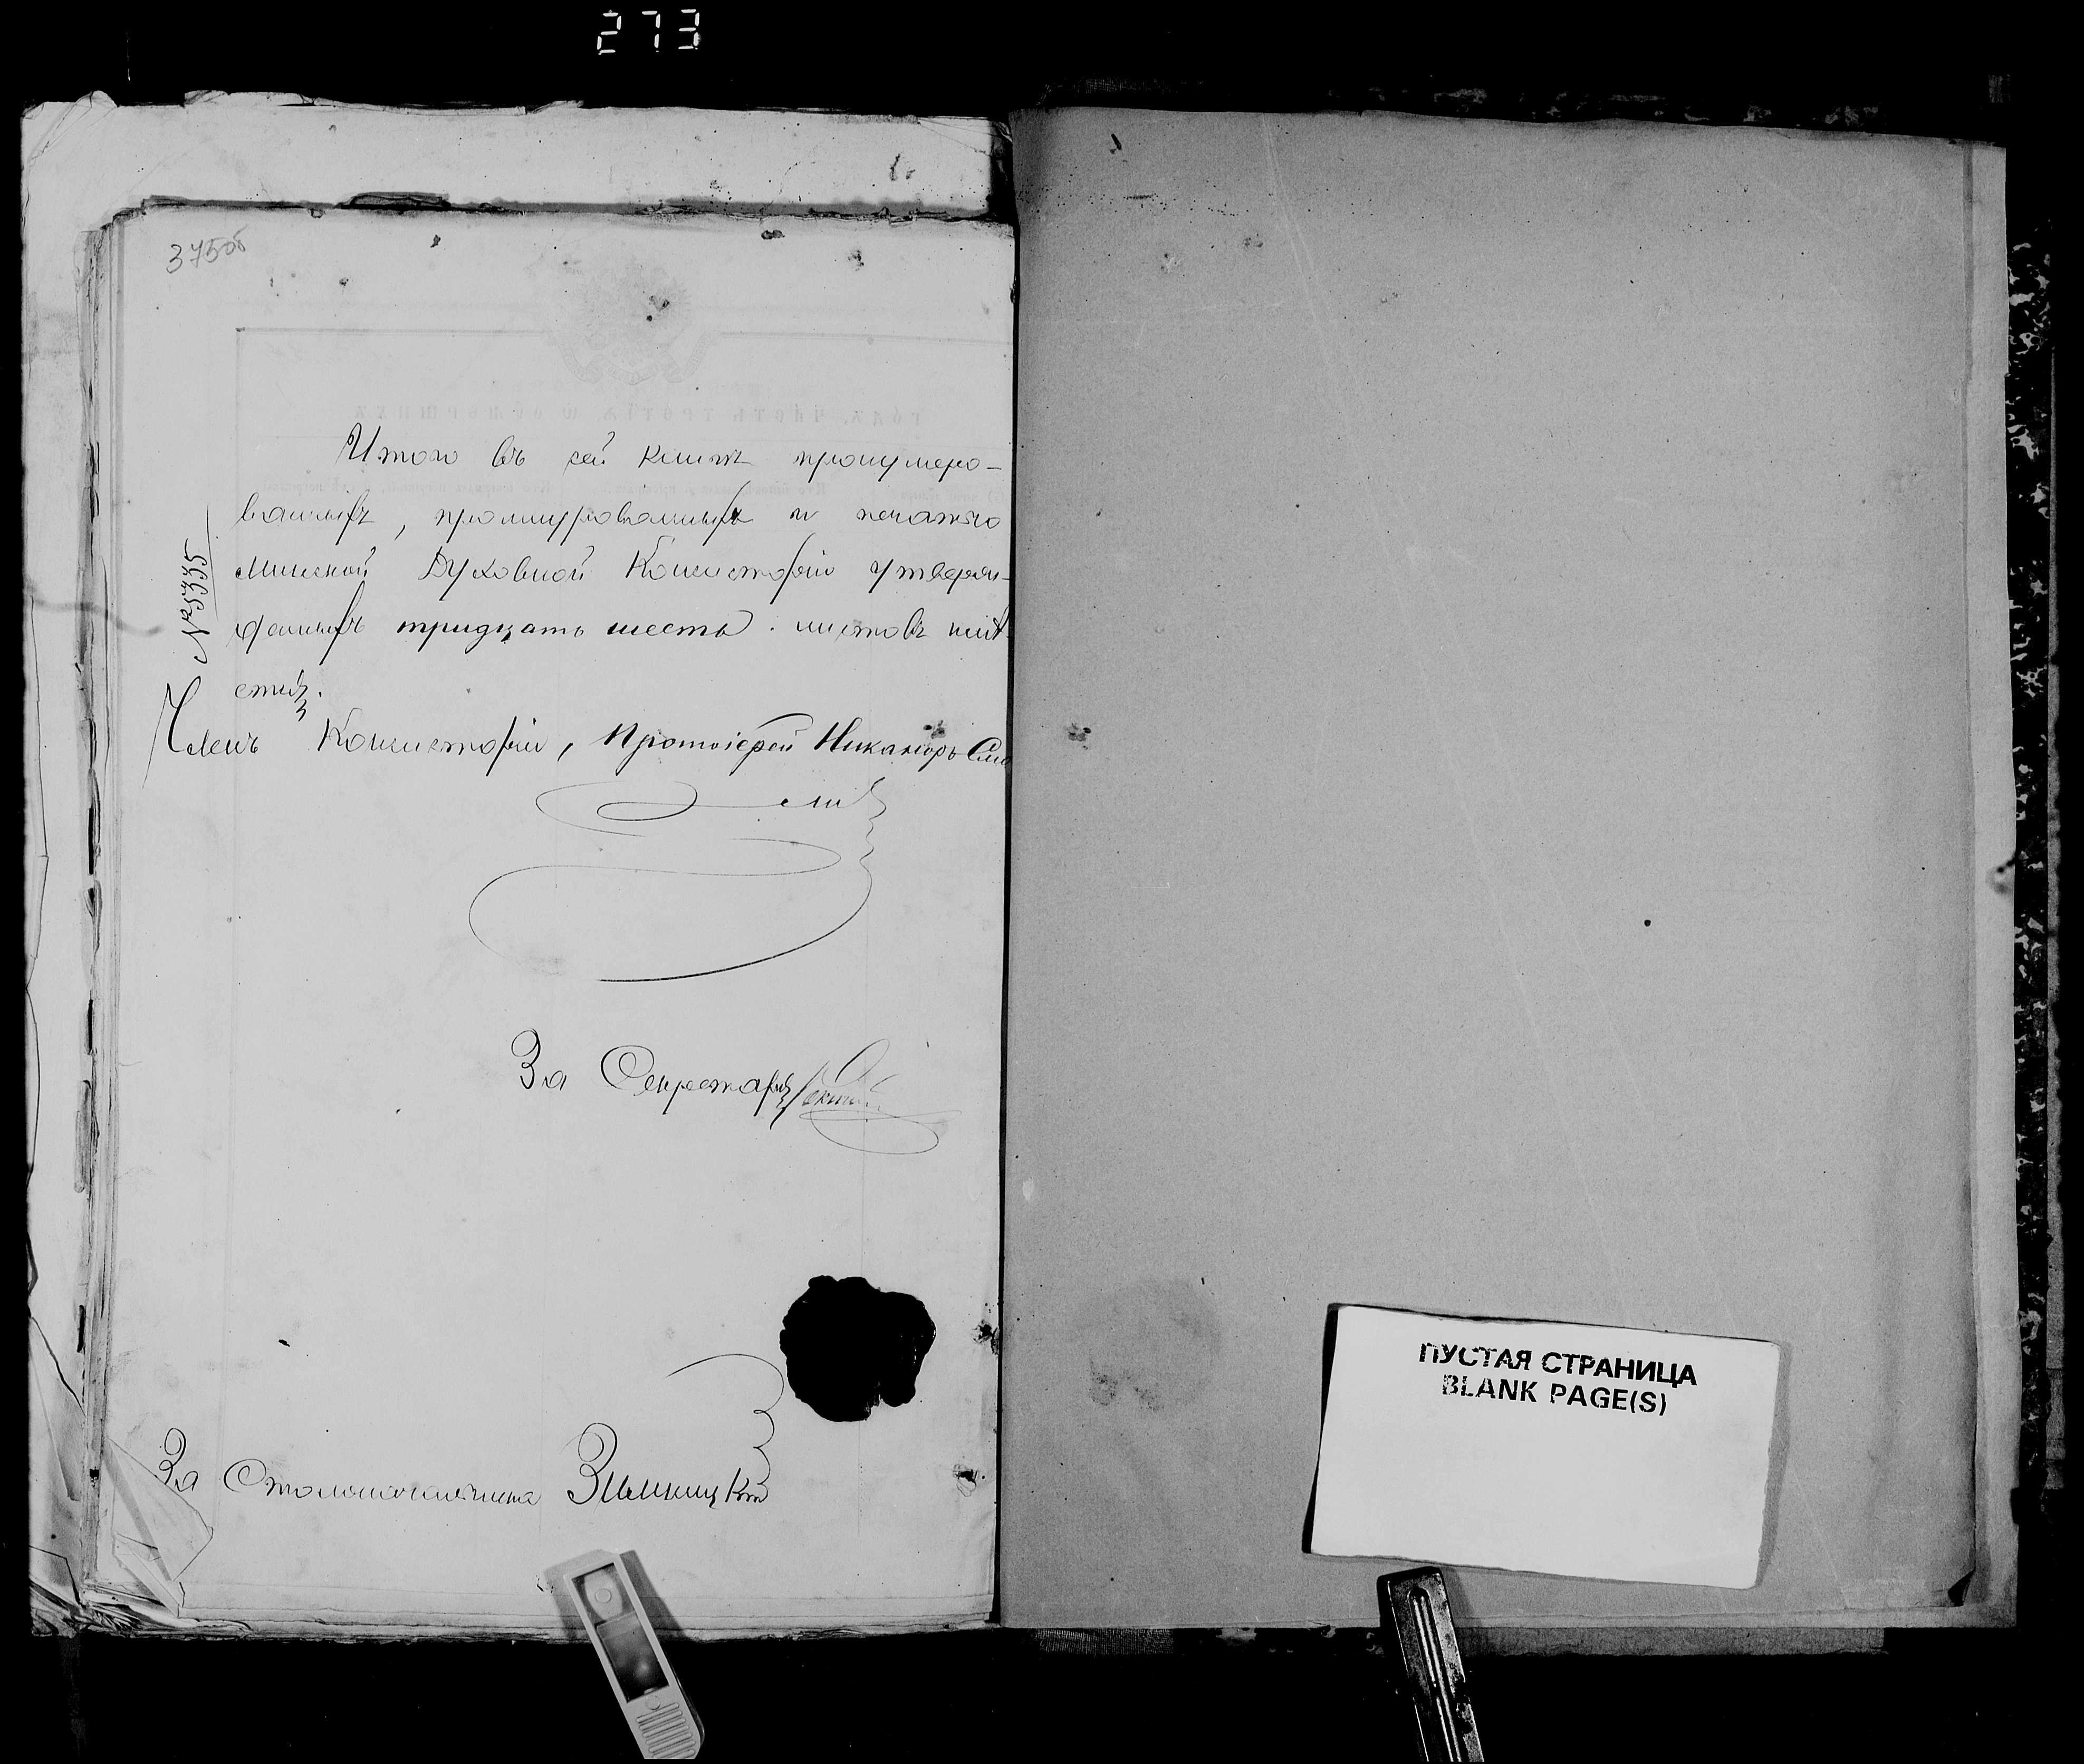 273
375об
Итого въ сей книгѣ пронумеро-
ванныхъ, прошнурованныхъ и печатью
Минской Духовной Консисторіи утверж-
денныхъ тридцать шесть листовъ
№ 5335
Членъ Консисторіи, Протоіерей Никаноръ Смо
личъ
За Секретаря
За Столоначальника
ПУСТАЯ СТРАНИЦА
BLANK PAGE(S)